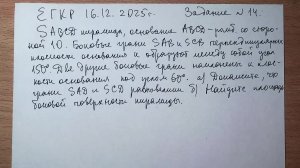 ЕГКР 16.12.2025г. Задание №14.
SABCD пирамида, основание ABCD - ромб со сторо-
ной 10. Боковые грани SAB и SCB перпендикулярны
плоскости основания и образуют между собой угол
150°. Две другие боковые грани наклонены к плос-
кости основания под углом 60°. а) Докажите, что
грани SAB и SCD равновелики б) Найдите площадь
боковой поверхности пирамиды.